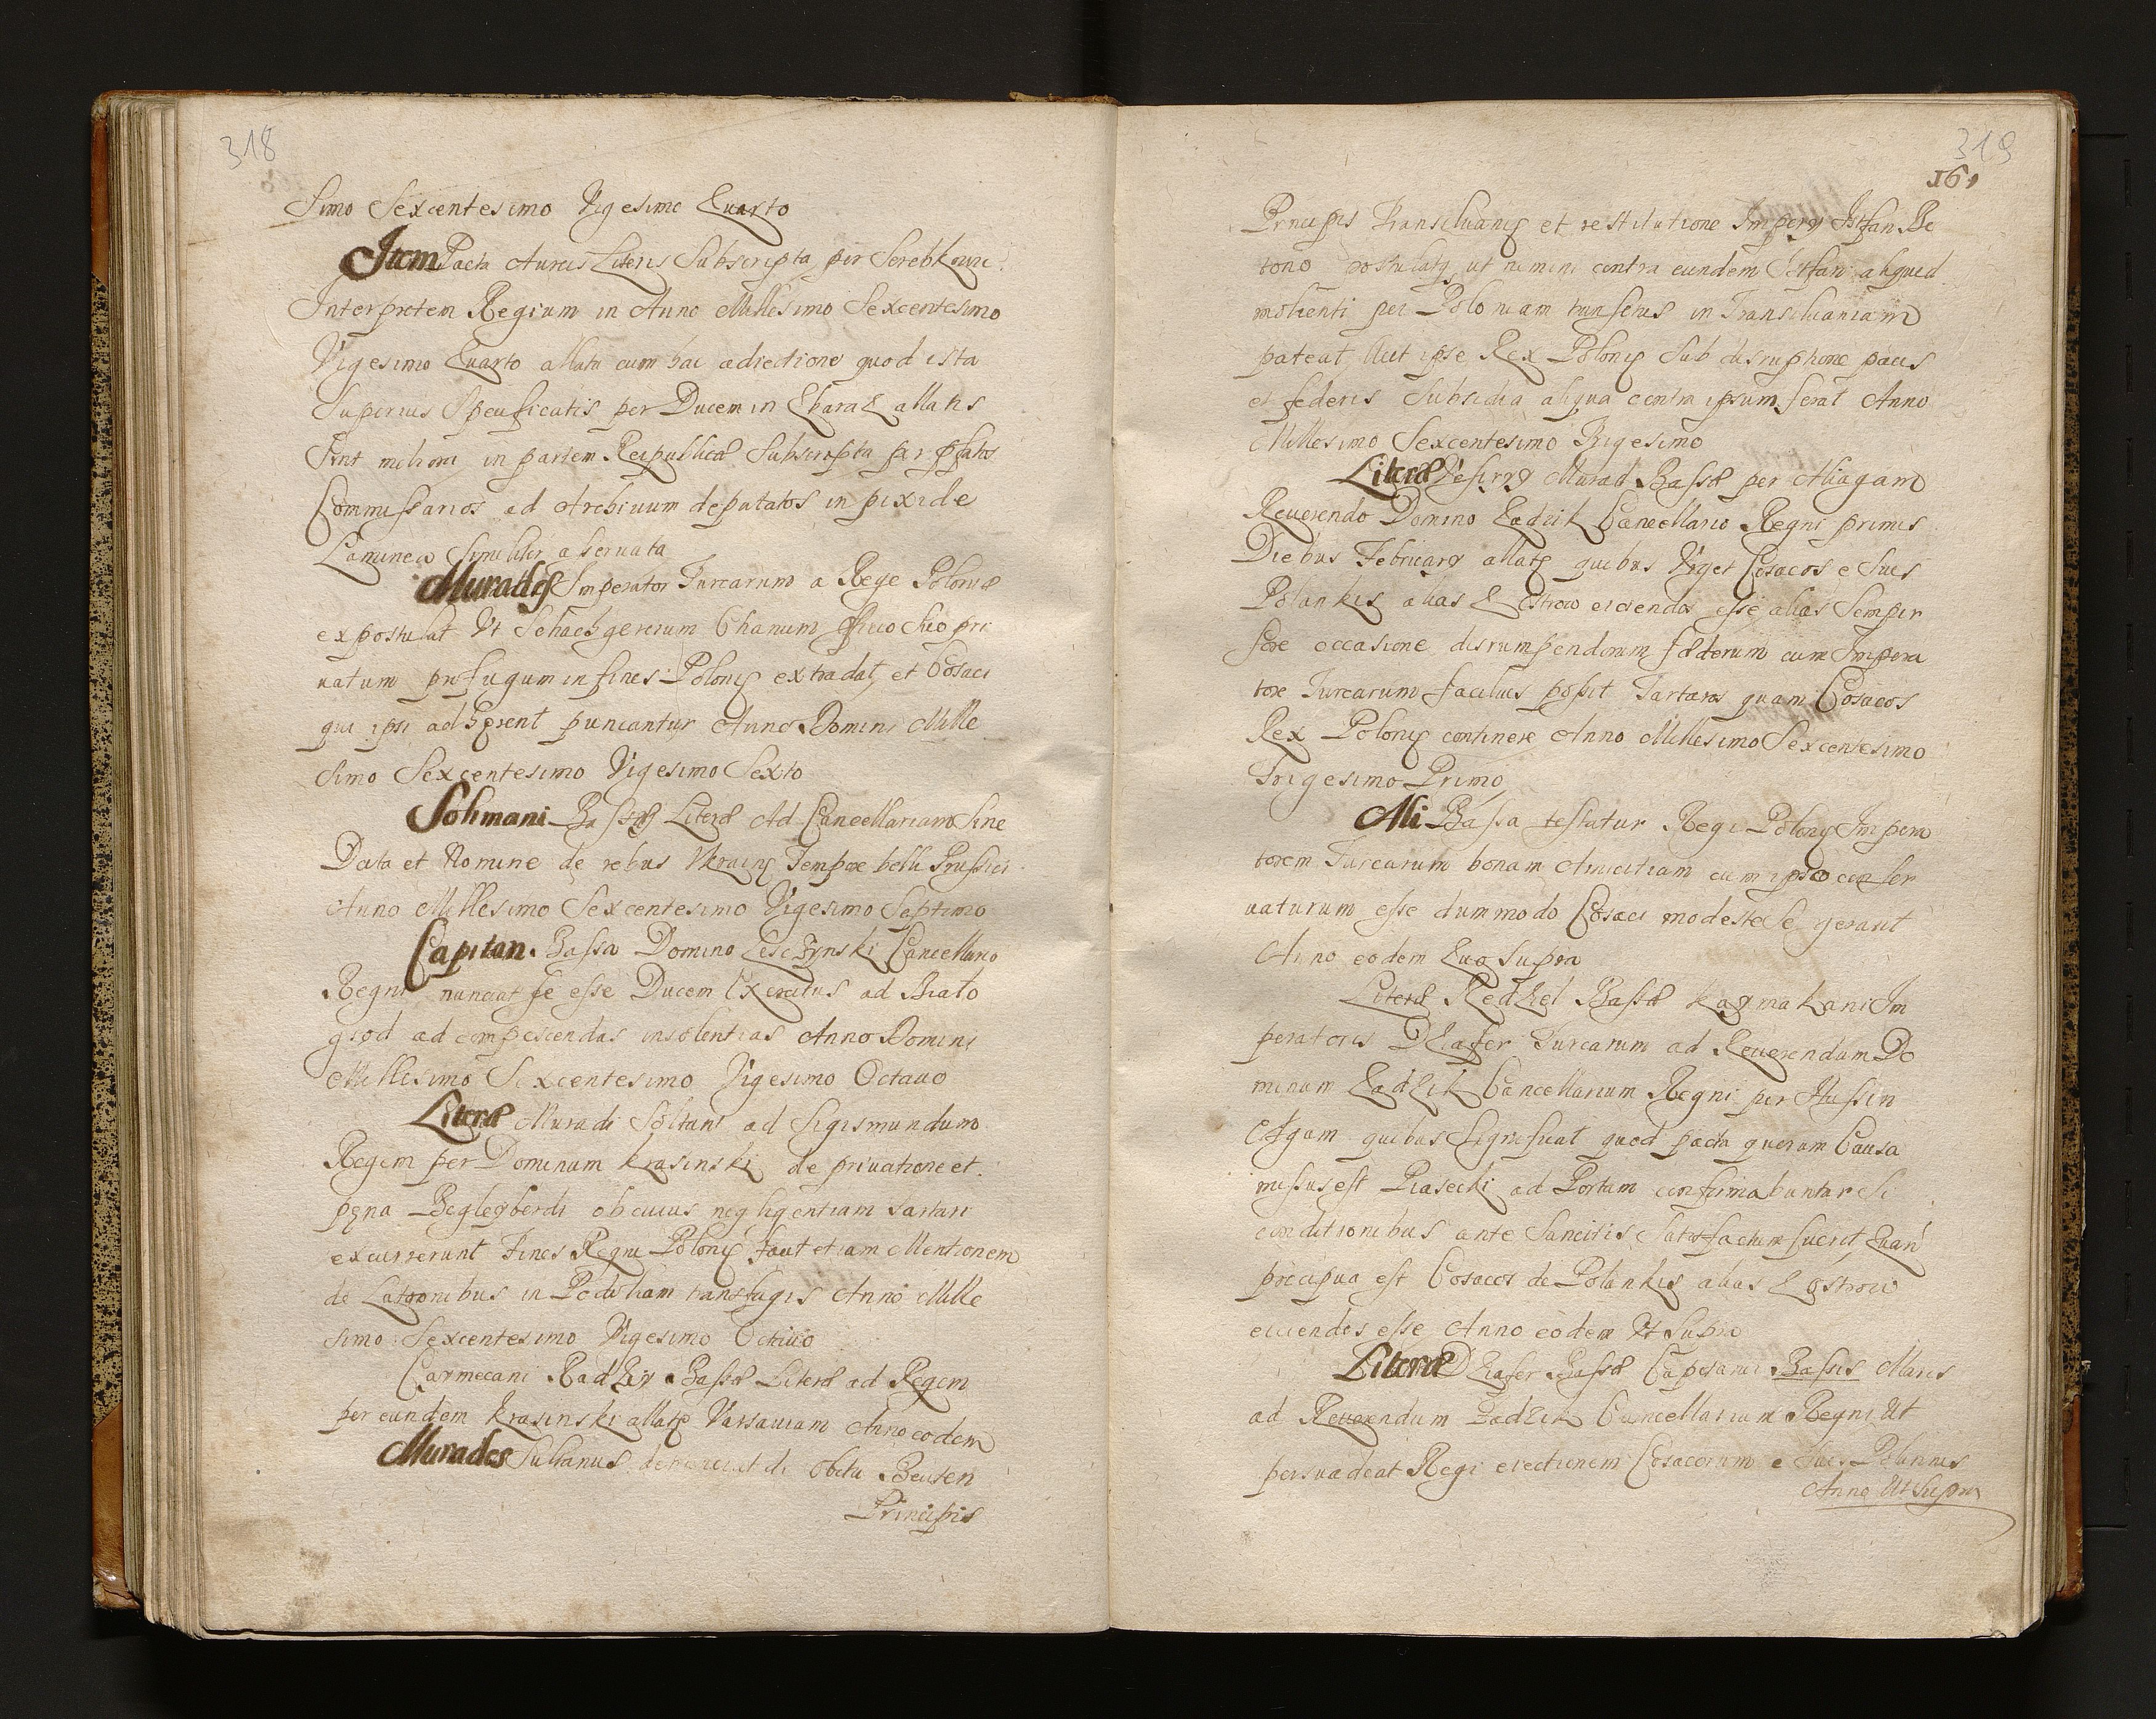 318
Simo Sexcentesimo Vigesimo Quarto
Item Pacta Aureis Literis Subscripta per Serebkowi
Interpretem Regium in Anno Millesimo Sexcentesimo
Vigesimo Quarto allata cum hac adiectione quod ista
Superius Specificatis per Ducem in Zbaraz allatis
Sint meliora in partem Reipublicæ Subscripta per pfatos
Commissarios ad Archivum deputatos in pixide
Laminea Similiter aservata
Murades Imperator Turcarum a Rege Poloniæ
expostulat Vt Schachgereium Chanum pri
uatum profugum in fines Polonię extradat, et Cosaci
qui ipsi adhęrent puniantur Anno Domini Mille
Simo Sexcentesimo Vigesimo Sexto
Solimani Bassæ Literæ Ad Cancellariam Sine
Data et Nomine de rebus Vkrainę Tempore belli Prussici
Anno Millesimo Sexcentesimo Vigesimo Septimo
Capitan Bassa Domino Lesczynski Cancellario
Regni nunciat se esse Ducem Exercitus ad Biało
grod ad compescendas insolentias Anno Domini
Millesimo Sexcentesimo Vigesimo Octauo
Literæ Muradi Soltani ad Sigismundum
Regem per Dominum Krasinski de priuatione et
pęna Beglerberdi ob cuius negligentiam Tartari
excurrerunt Fines Regni Polonię facit etiam Mentionem
de Latronibus in Podoliam transfugis Anno Mille
simo Sexcentesimo Vigesimo Octauo
Carmecani Radzig Bassæ Literæ ad Regem
per eundem Krasinski allatę Varsauiam Anno eodem
Murades Sultanus denunciat de Obitu Beusen
Principis
319
161
Principis Transiluanię et restitutione Impery Istfan Be
tono postulatq ut nemini contra eundem Istfan aliquid
molienti per Poloniam transitus in Transiluaniam
pateat, Aut ipse Rex Polonię Sub disruptione pacis
et federis Subsidia aliqua contra ipsum ferat Anno
Millesimo Sexcentesimo Trigesimo
Literæ Vesiry Murad Bassæ per Aliagam
Reuerendo Domino Zadzik Cancellario Regni primis
Diebus February allatę quibus Vrget Cosacos e Suis
Polankis alias z Ostrow eiciendos esse alias Semper
fore occasione disrumpendorum fæderum cum Impera
tore Turcarum facilius possit Tartaros quam Cosacos
Rex Polonię continere Anno Millesimo Sexcentesimo
Trigesimo Primo
Ali Bassa testatur Regi Polonię Impera
torem Turcarum bonam Amicitiam cum ipso conser
uaturum esse dummodo Cosaci modeste Se gerant
Anno eodem Quo Supra
Literæ Redzel Bassæ Kaymakani Im
peratoris Dzafer Turcarum ad Reuerendum Do
minum Zadzik Cancellarium Regni per Hussin
Agam quibus Significat quod pacta quorum Causa
missus est Piasecki ad Portam confirmabuntur Si
conditionibus ante Sancitis Satisfactum fuerit, Quarū
precipua est Cosacos de Polankis alias z Ostrow
eiiciendos esse Anno eodem Vt Supra
Literæ Dzafer Bassæ Capitani Bassis Maris
ad Reuerendum Zadzik Cancellarium Regni Ut
persuadeat Regi eiectionem Cosacorum e Suis Polannis
Anno Ut Supra